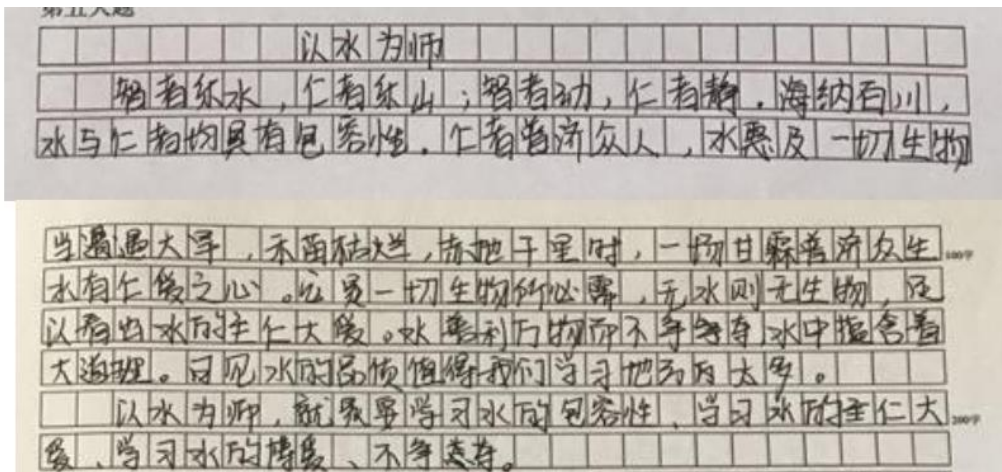 第五大题
以水为师
智者乐水，仁者乐山；智者动，仁者静．海纳百川，
水与仁者均具有包容性．仁者普济众人，水惠及一切生物
当遭遇大旱，禾苗枯烂，赤地千里时，一场甘霖普济众生
100字
水有仁爱之心。它是一切生物所必需，无水则无生物，足
以看出水的至仁大爱。水善利万物而不争，水中蕴含着
大道理。可见水的品质值得我们学习地方有太多。
以水为师，就是要学习水的包容性、学习水的至仁大
200字
爱、学习水的博爱、不争